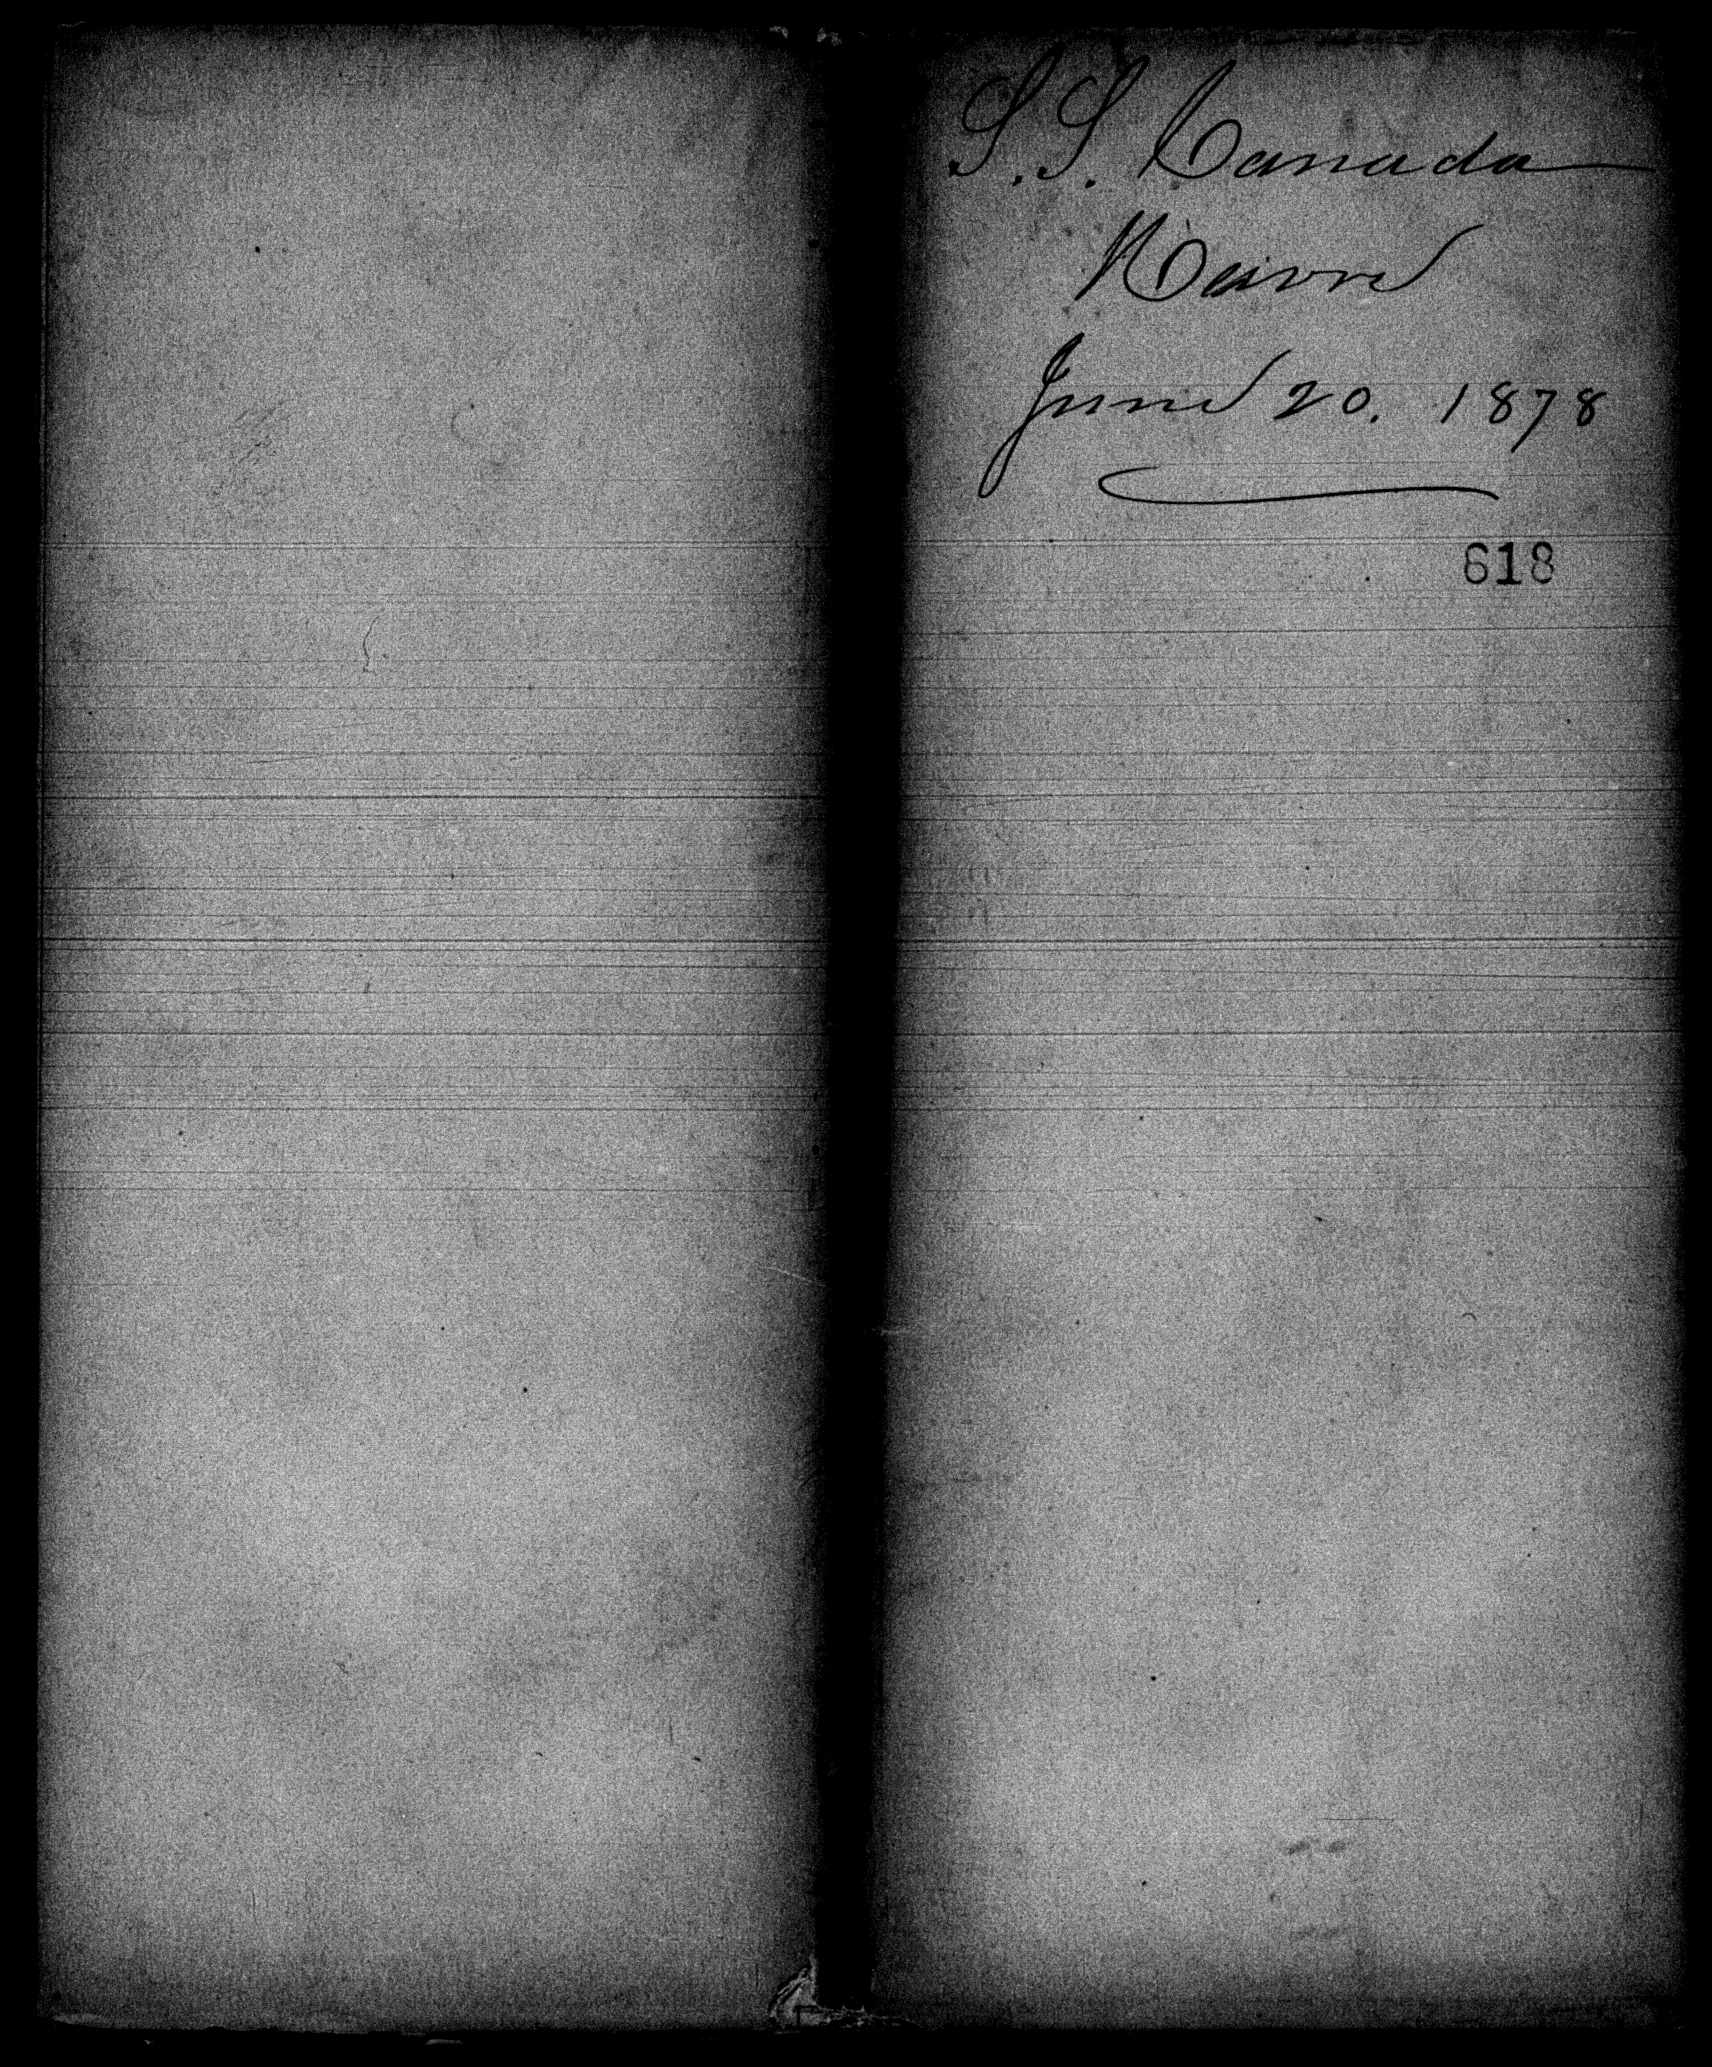 S.S. Canada
Havre
June 20. 1878
618